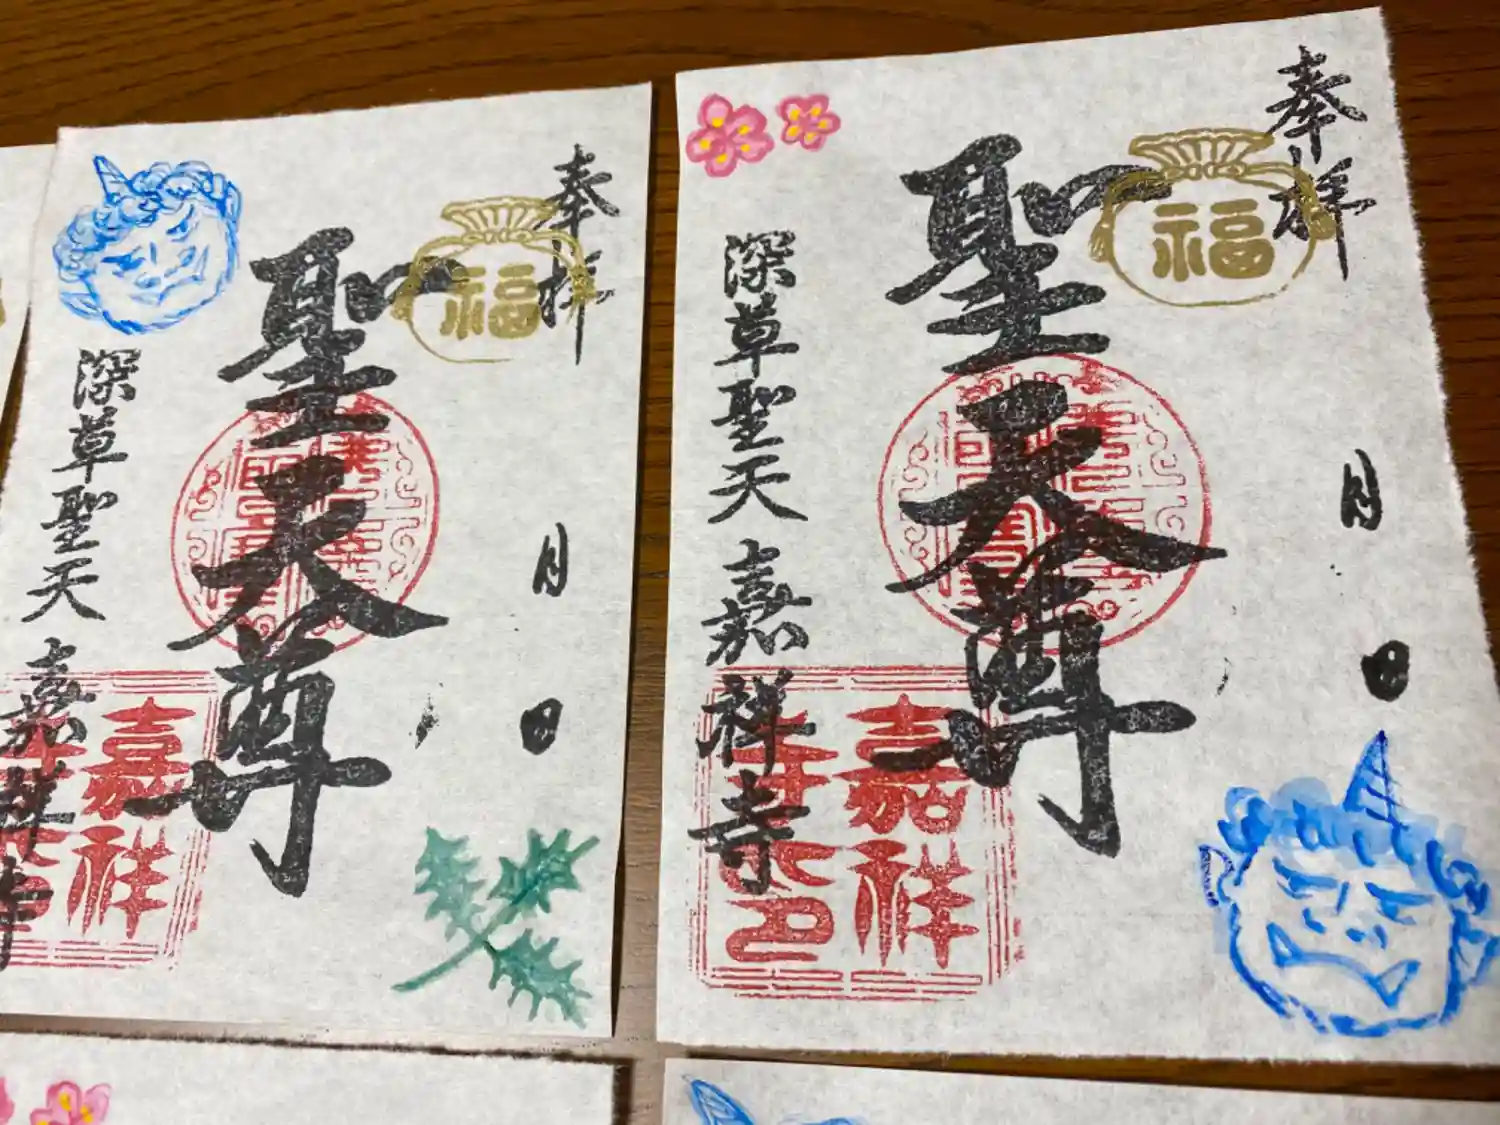 奉拝
福
聖天尊
月
日
深草聖天 嘉祥寺
嘉祥
奉拝
福
聖天尊
月
日
深草聖天 嘉祥寺
嘉祥
寺之印